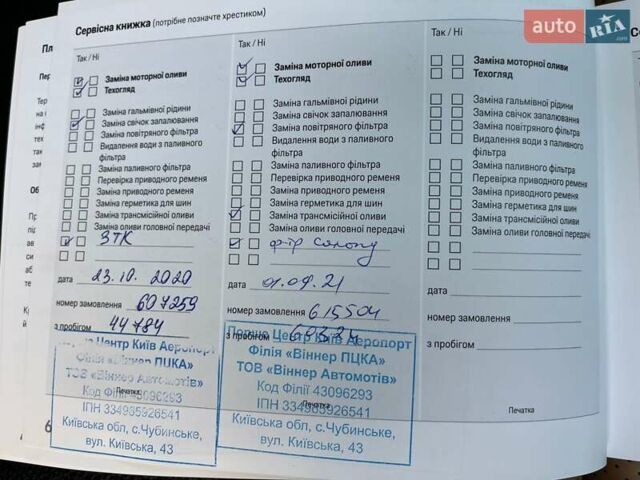 Сервісна книжка (потрібне позначте хрестиком)
auto RIA.com
Так / Ні
Заміна моторної оливи
Техогляд
Заміна гальмівної рідини
Заміна свічок запалювання
Заміна повітряного фільтра
Видалення води з паливного
фільтра
Заміна паливного фільтра
Перевірка приводного ременя
Заміна приводного ременя
Заміна герметика для шин
Заміна трансмісійної оливи
Заміна оливи головної передачі
ЗТК
дата 23.10.2020
номер замовлення 607259
з пробігом 44784
Центр Київ Аеропорт
Філія «Віннер ПЦКА»
ТОВ «Віннер Автомотів»
Код Філії 43096293
Печатка
ІПН 334935926541
Київська обл, с.Чубинське,
вул. Київська, 43
Так / Ні
Заміна моторної оливи
Техогляд
Заміна гальмівної рідини
Заміна свічок запалювання
Заміна повітряного фільтра
Видалення води з паливного
фільтра
Заміна паливного фільтра
Перевірка приводного ременя
Заміна приводного ременя
Заміна герметика для шин
Заміна трансмісійної оливи
Заміна оливи головної передачі
ф-тр салону
дата 01.09.21
номер замовлення 615504
з пробігом
Перше Центр Київ Аеропорт
Філія «Віннер ПЦКА»
ТОВ «Віннер Автомотів»
Код Філії 43096293
Печатка
ІПН 334935926541
Київська обл, с.Чубинське,
вул. Київська, 43
Так / Ні
Заміна моторної оливи
Техогляд
Заміна гальмівної рідини
Заміна свічок запалювання
Заміна повітряного фільтра
Видалення води з паливного
фільтра
Заміна паливного фільтра
Перевірка приводного ременя
Заміна приводного ременя
Заміна герметика для шин
Заміна трансмісійної оливи
Заміна оливи головної передачі
дата
номер замовлення
з пробігом
Печатка